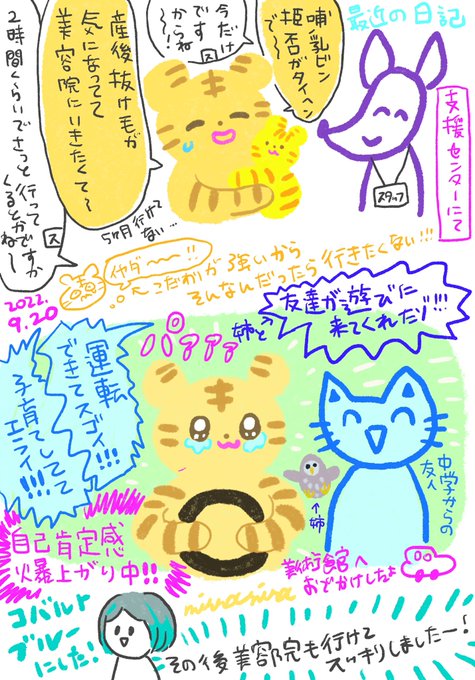 最近の日記
支援センターにて
スタッフ
哺乳ビン
拒否がタイヘン
で〜
今だけ
です
からね〜
ス
産後抜け毛が
気になってて
美容院にいきたくて〜
2時間くらいでさっと行って
くるとかですか
ね〜
ス
5ヶ月行けて
ない…
イヤダ〜〜!!
こだわりが強いから
そんなんだったら行きたくない!!!
2022.
9.20
友達が遊びに
来てくれたゾ!!!
姉と
パァァァ
運転
できてスゴイ!!!
子育てしてて
エライ!!!
中学からの
友人
↑姉
自己肯定感
爆上がり中!!
美術館へ
おでかけしたよ
minamina
コバルト
ブルー
にした!
その後美容院も行けて
スッキリしましたー!